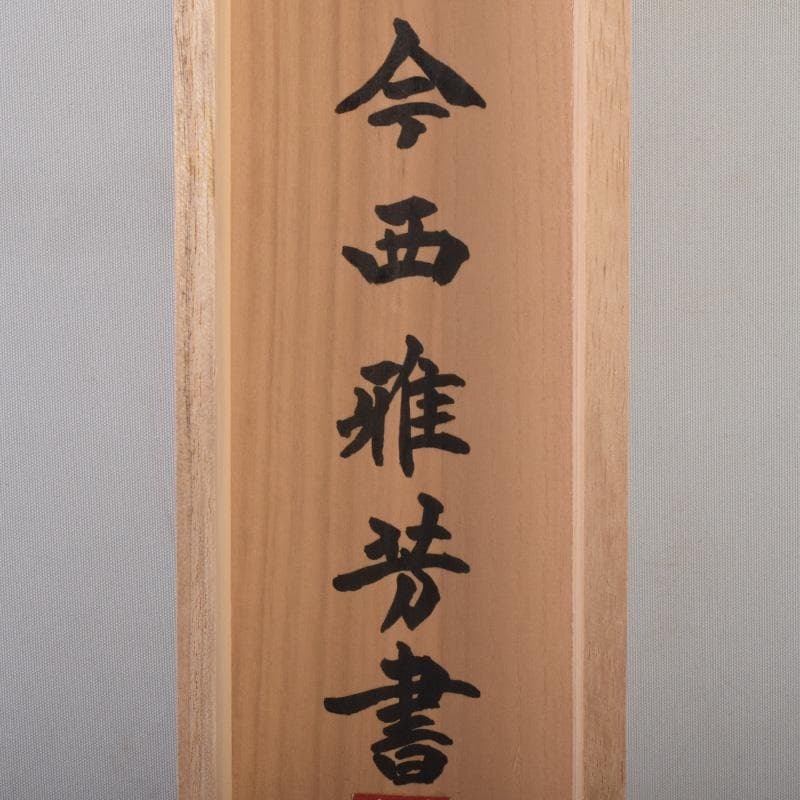 今西雅芳書